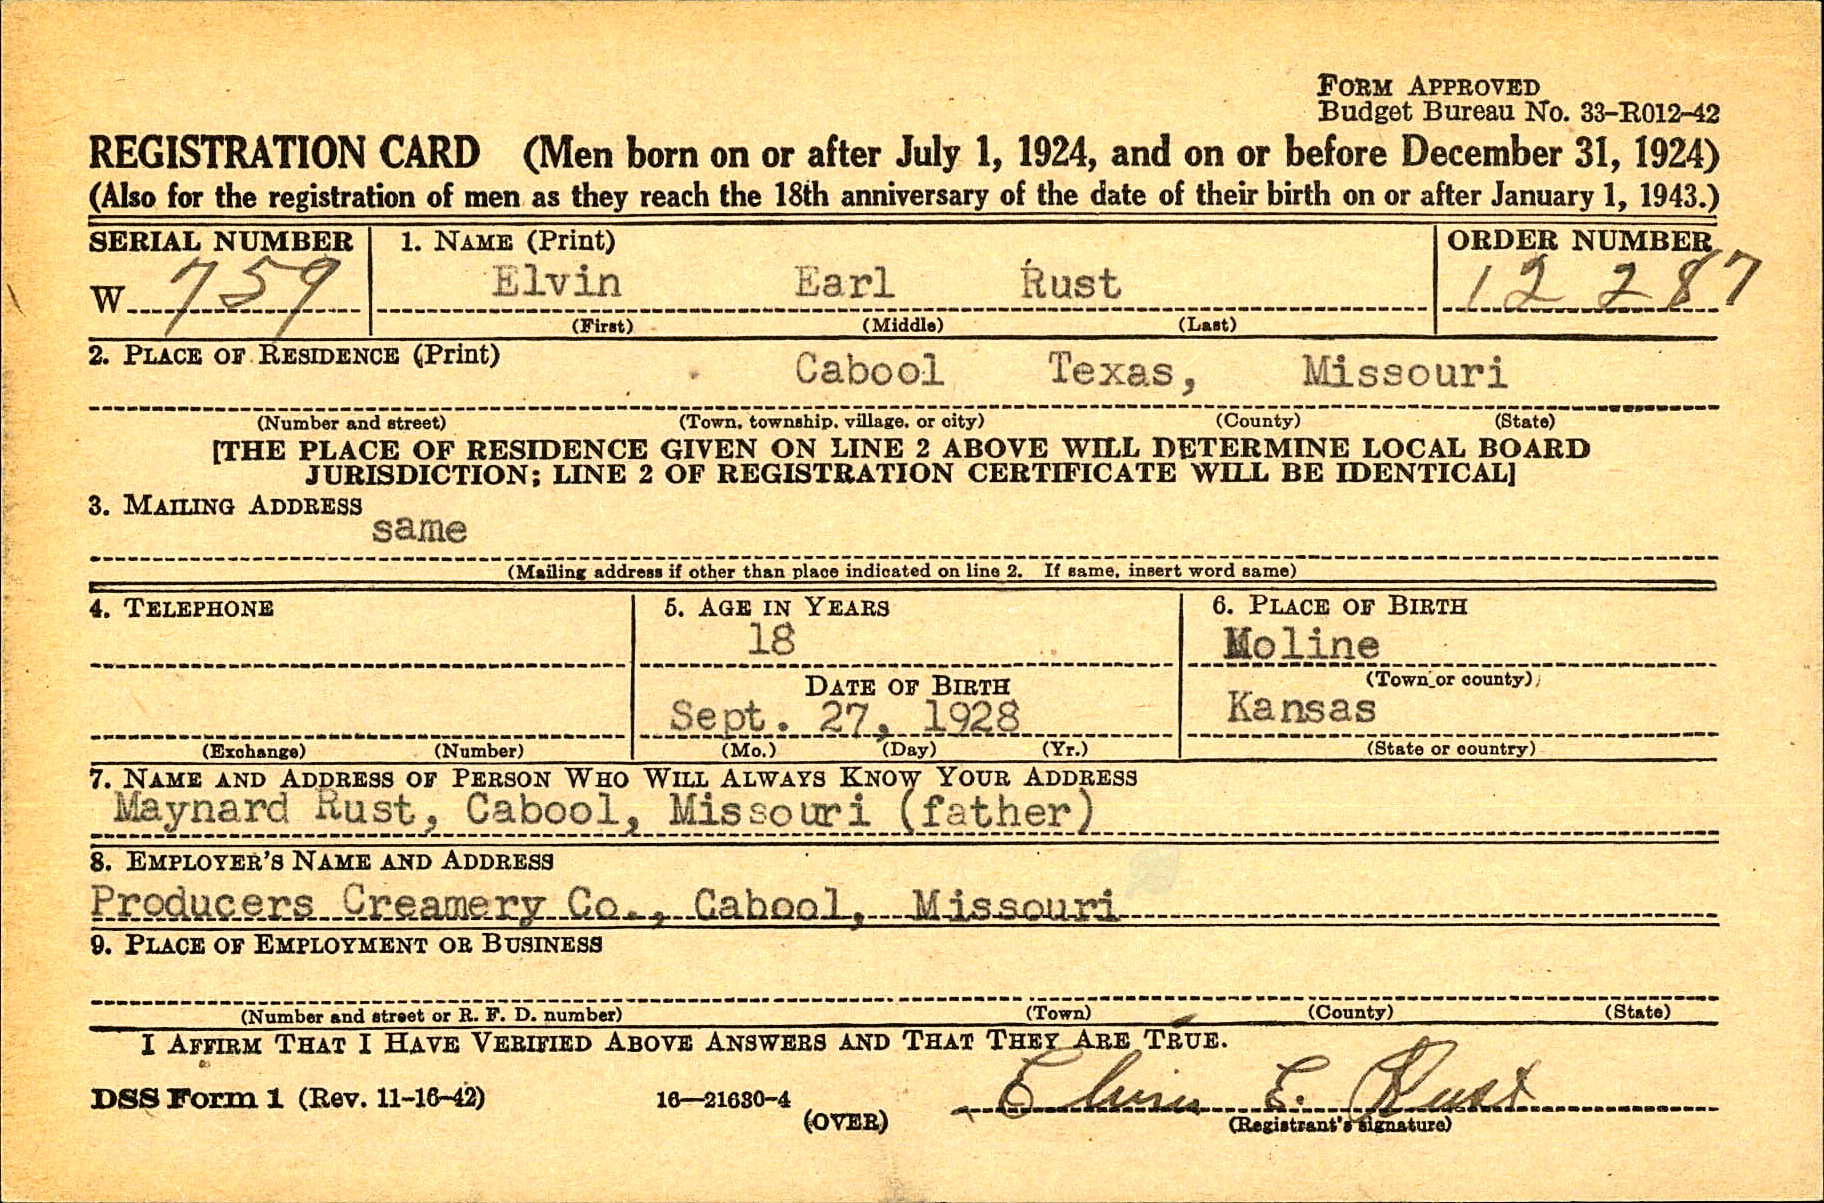 FORM APPROVED
Budget Bureau No. 33-R012-42
REGISTRATION CARD (Men born on or after July 1, 1924, and on or before December 31, 1924)
(Also for the registration of men as they reach the 18th anniversary of the date of their birth on or after January 1, 1943.)
SERIAL NUMBER 1. NAME (Print) ORDER NUMBER
W 759 Elvin Earl Rust 12 287
(First) (Middle) (Last)
2. PLACE OF RESIDENCE (Print)
Cabool Texas, Missouri
(Number and street) (Town, township, village, or city) (County) (State)
[THE PLACE OF RESIDENCE GIVEN ON LINE 2 ABOVE WILL DETERMINE LOCAL BOARD
JURISDICTION; LINE 2 OF REGISTRATION CERTIFICATE WILL BE IDENTICAL]
3. MAILING ADDRESS
same
(Mailing address if other than place indicated on line 2. If same, insert word same)
4. TELEPHONE 5. AGE IN YEARS 6. PLACE OF BIRTH
18 Moline
DATE OF BIRTH (Town or county)
Sept. 27, 1928 Kansas
(Exchange) (Number) (Mo.) (Day) (Yr.) (State or country)
7. NAME AND ADDRESS OF PERSON WHO WILL ALWAYS KNOW YOUR ADDRESS
Maynard Rust, Cabool, Missouri (father)
8. EMPLOYER'S NAME AND ADDRESS
Producers Creamery Co., Cabool, Missouri
9. PLACE OF EMPLOYMENT OR BUSINESS
(Number and street or R. F. D. number) (Town) (County) (State)
I AFFIRM THAT I HAVE VERIFIED ABOVE ANSWERS AND THAT THEY ARE TRUE.
DSS Form 1 (Rev. 11-16-42) 16—21630-4 Elvin E. Rust
(OVER) (Registrant's signature)